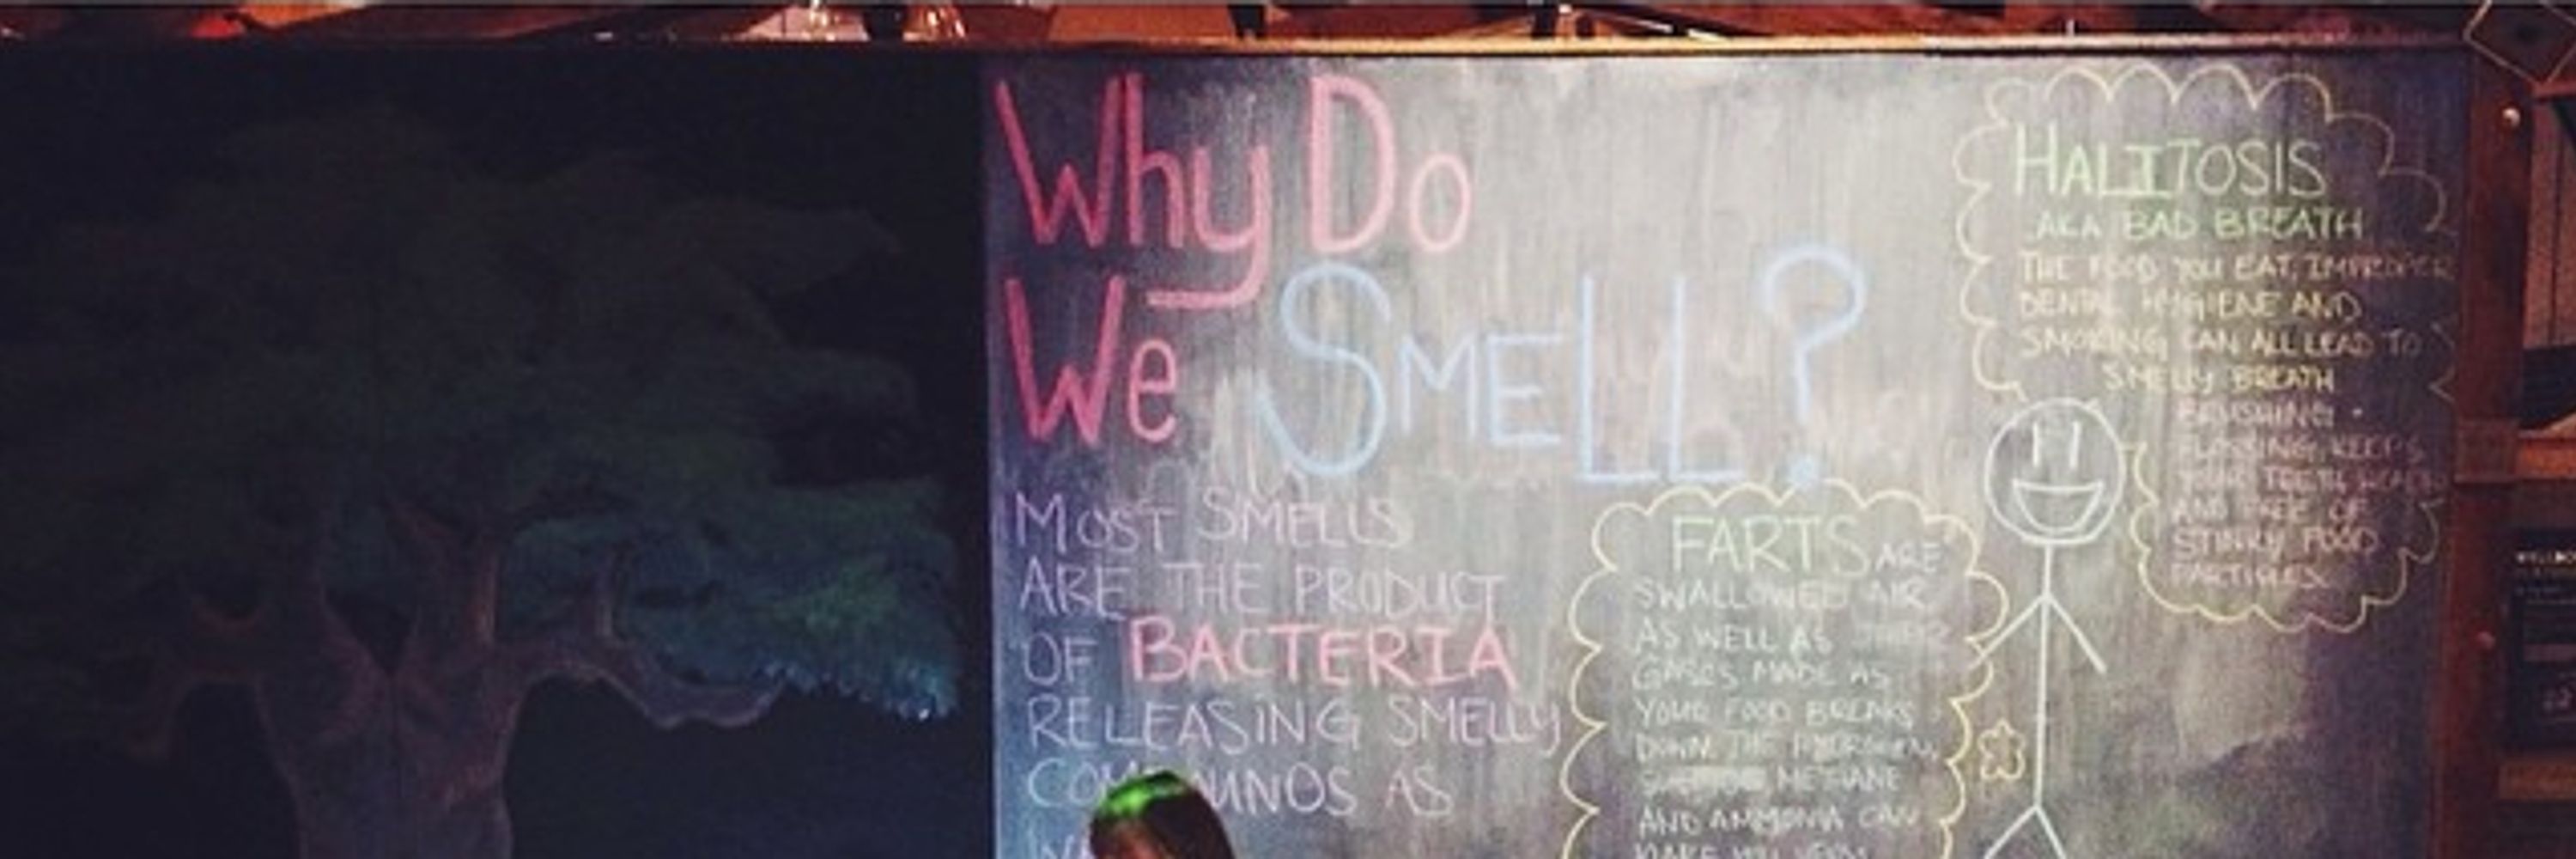 Why Do
We SMELL?
MOST SMELLS
ARE THE PRODUCT
OF BACTERIA
RELEASING SMELLY
AS
FARTS ARE
SWALLOWED AIR
AS WELL AS
GASES MADE AS
YOUR FOOD BREAKS
DOWN. THE HYDROGEN,
METHANE
AND AMMONIA CAN
MAKE YOU
HALITOSIS
AKA BAD BREATH
THE FOOD YOU EAT, IMPROPER
DENTAL HYGIENE AND
SMOKING CAN ALL LEAD TO
SMELLY BREATH
BRUSHING +
FLOSSING KEEPS
YOUR TEETH
AND FREE OF
STINKY FOOD
PARTICLES